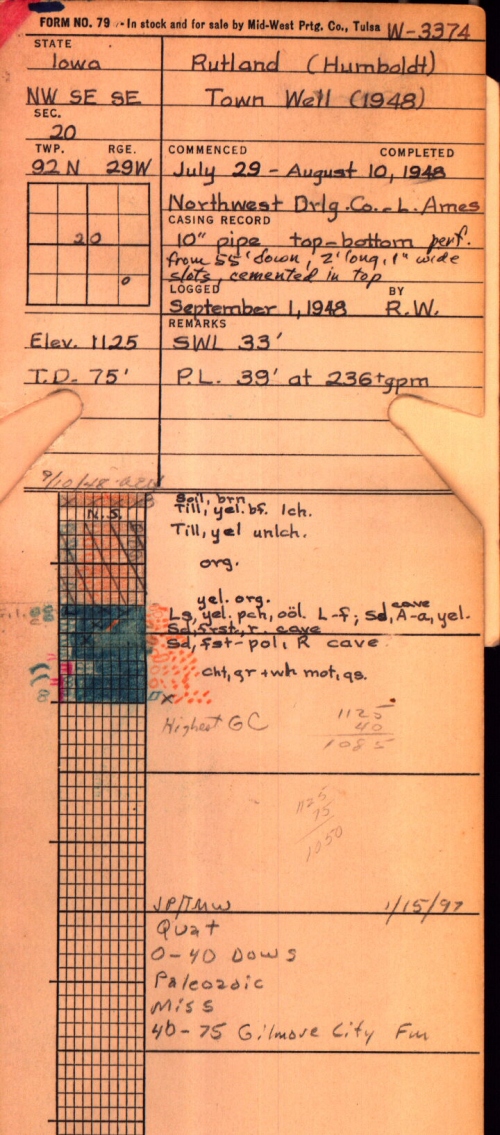 FORM NO. 79 - In stock and for sale by Mid-West Prtg. Co., Tulsa W-3374
STATE
Iowa Rutland (Humboldt)
NW SE SE Town Well (1948)
SEC.
20
TWP. RGE. COMMENCED COMPLETED
92 N 29W July 29 - August 10, 1948
Northwest Drlg. Co. - L. Ames
CASING RECORD
20
10" pipe top-bottom perf.
from 55' down, 2' long, 1" wide
slots, cemented in top
LOGGED BY
September 1, 1948 R.W.
REMARKS
Elev. 1125 SWL 33'
T.D. 75' P.L. 39' at 236+gpm
9/10/48
Soil, brn
Till, yel. bf. lch.
N.S.
Till, yel unlch.
org.
yel. org.
cave
Ls, yel. pch, oöl. L-f; Sd, A-a, yel.
Sd, frst, r. cave
Sd, fst-pol, R cave
cht, gr + wh mot, qs.
Highest GC
1125
40
1085
1125
75
1050
JP/TMW 1/15/97
Quat
0-40 Dows
Paleozoic
Miss
40-75 Gilmore City Fm